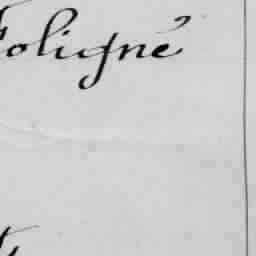 foligné